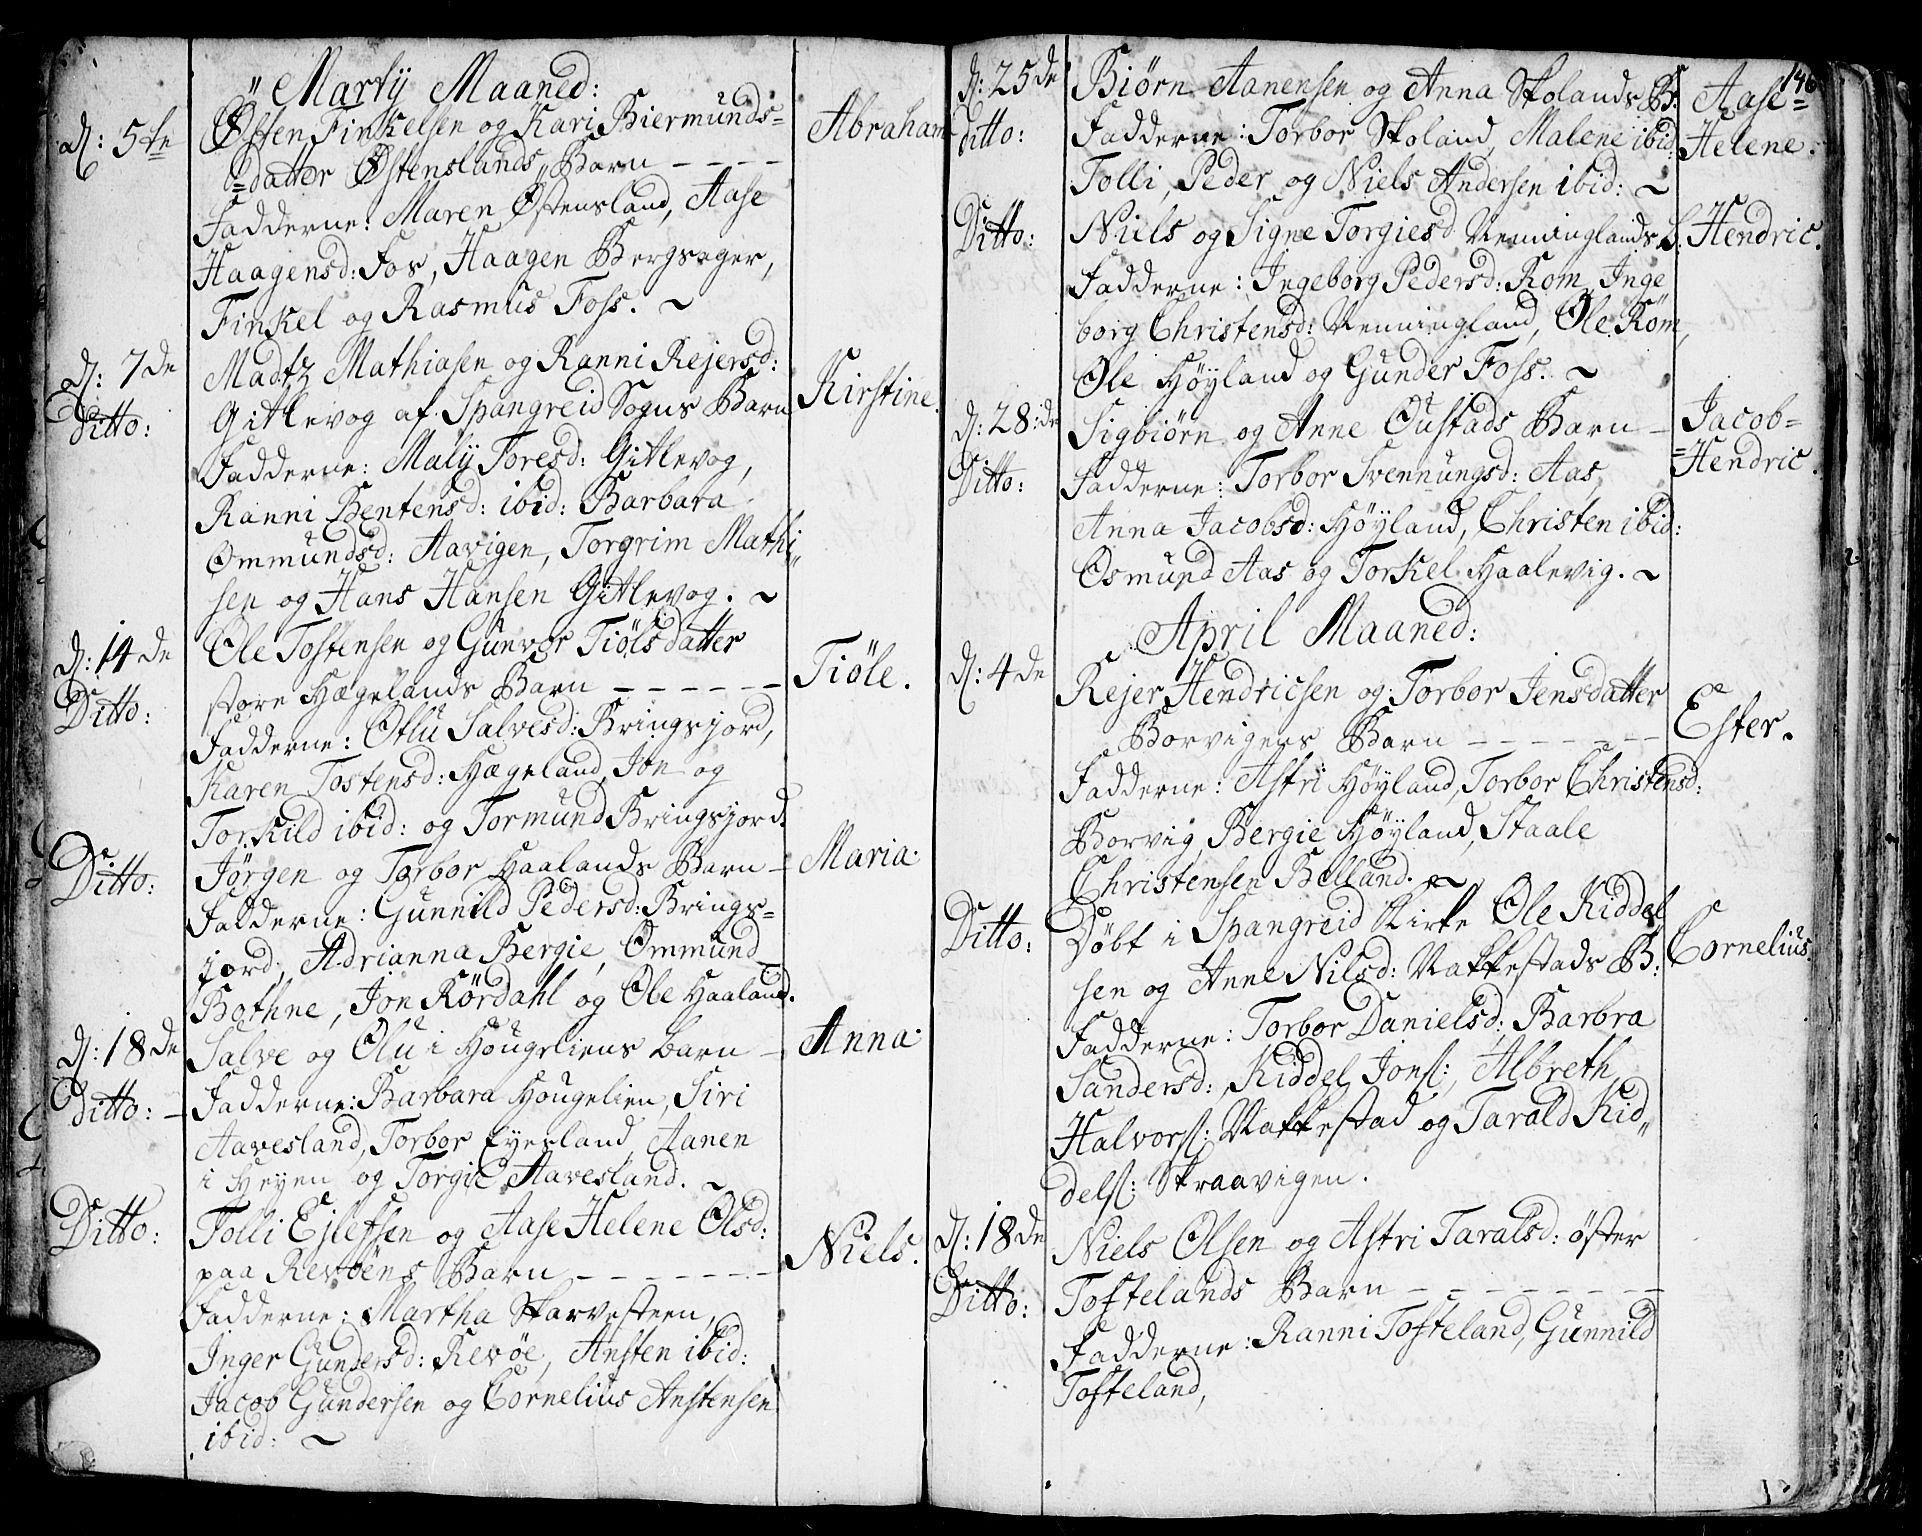 Martÿ Maaned:
d: 5te Østen Finkelsen og Kari Biermunds= Abraham
=datter Østenslands Barn - - - -
Fadderne: Maren Østensland, Aase
Haagensd: Fos, Haagen Bergsager,
Finkel og Rasmus Foss. ~
d: 7de Madtz Mathiasen og Ranni Rejersd: Kirstine.
Ditto: Gitlevog af Spangreid Sogns Barn
Fadderne: Malÿ Toresd: Gitlevog,
Ranni Bentensd: ibid: Barbara
Ommundsd: Aavigen, Torgrim Mathi„
sen og Hans Hansen Gitlevog. ~
d: 14de Ole Tostensen og Gunvor Tiölsdatter Tiöle.
Ditto: store Hægelands Barn - - - - - -
Fadderne: Otlu Salvesd: Bringsjord,
Karen Tostensd: Hægeland, Jon og
Torkild ibid: og Tormund Bringsjord.
Ditto: Jörgen og Torbor Haalands Barn - Maria.
Fadderne: Gunnild Pedersd: Brings=
jord, Adrianna Bergie, Ommund
Bothne, Jon Rördahl og Ole Haaland.
d: 18de Salve og Olu i Hougeliens barn - Anna.
Ditto: - Fadderne: Barbara Hougelien, Siri
Aavesland, Torbor Eyesland, Aanen
i Heyen og Torgie Aavesland. ~
Ditto: Tolli Ejlefsen og Aase Helene Olsd: Niels.
paa Revöens Barn - - - - - - -
Fadderne: Martha Skarvesteen,
Inger Gundersd: Revöe, Ansten ibid:
Jacob Gundersen og Cornelius Anstensen
ibid: ~
146
d: 25de Biørn Aanensen og Anna Skolands B. Aase=
Ditto: Fadderne: Torbor Skoland, Malene ibid: Helene.
Tolli, Peder og Niels Andersen ibid: ~
Ditto: Niels og Signe Torgiesd Venninglands B. Hendric.
Fadderne: Ingeborg Pedersd: Rom, Inge
borg Christensd: Venningland, Ole Rom,
Ole Höyland og Gunder Foss. ~
d: 28:de Sigbiörn og Anne Oustads Barn - Jacob=
Ditto: Fadderne: Torbor Svennungsd: Aas, =Hendric.
Anna Jacobsd: Höyland, Christen ibid:
Osmund Aas og Torkel Haalevig. ~
April Maaned:
d: 4de Rejer Hendricsen og Torbor Jensdatter
Borvigens Barn - - - - - - - Ester.
Fadderne: Astri Höyland, Torbor Christensd:
Borvig, Bergie Höyland, Staale
Christensen Belland. ~
Ditto: Döbt i Spangreid Kirke Ole Kiddel Cornelius.
sen og Anne Nilsd: Vakkestads B:
Fadderne: Torbor Danielsd: Barbra
Sandersd: Kiddel Jons:, Albreth
Halvors: Vakkestad og Tarald Kid„
dels: Skraavigen.
d: 18de Niels Olsen og Astri Taralsd: öster
Ditto: Toftelands Barn - - - - - - - -
Fadderne: Ranni Tofteland, Gunnild
Tofteland,